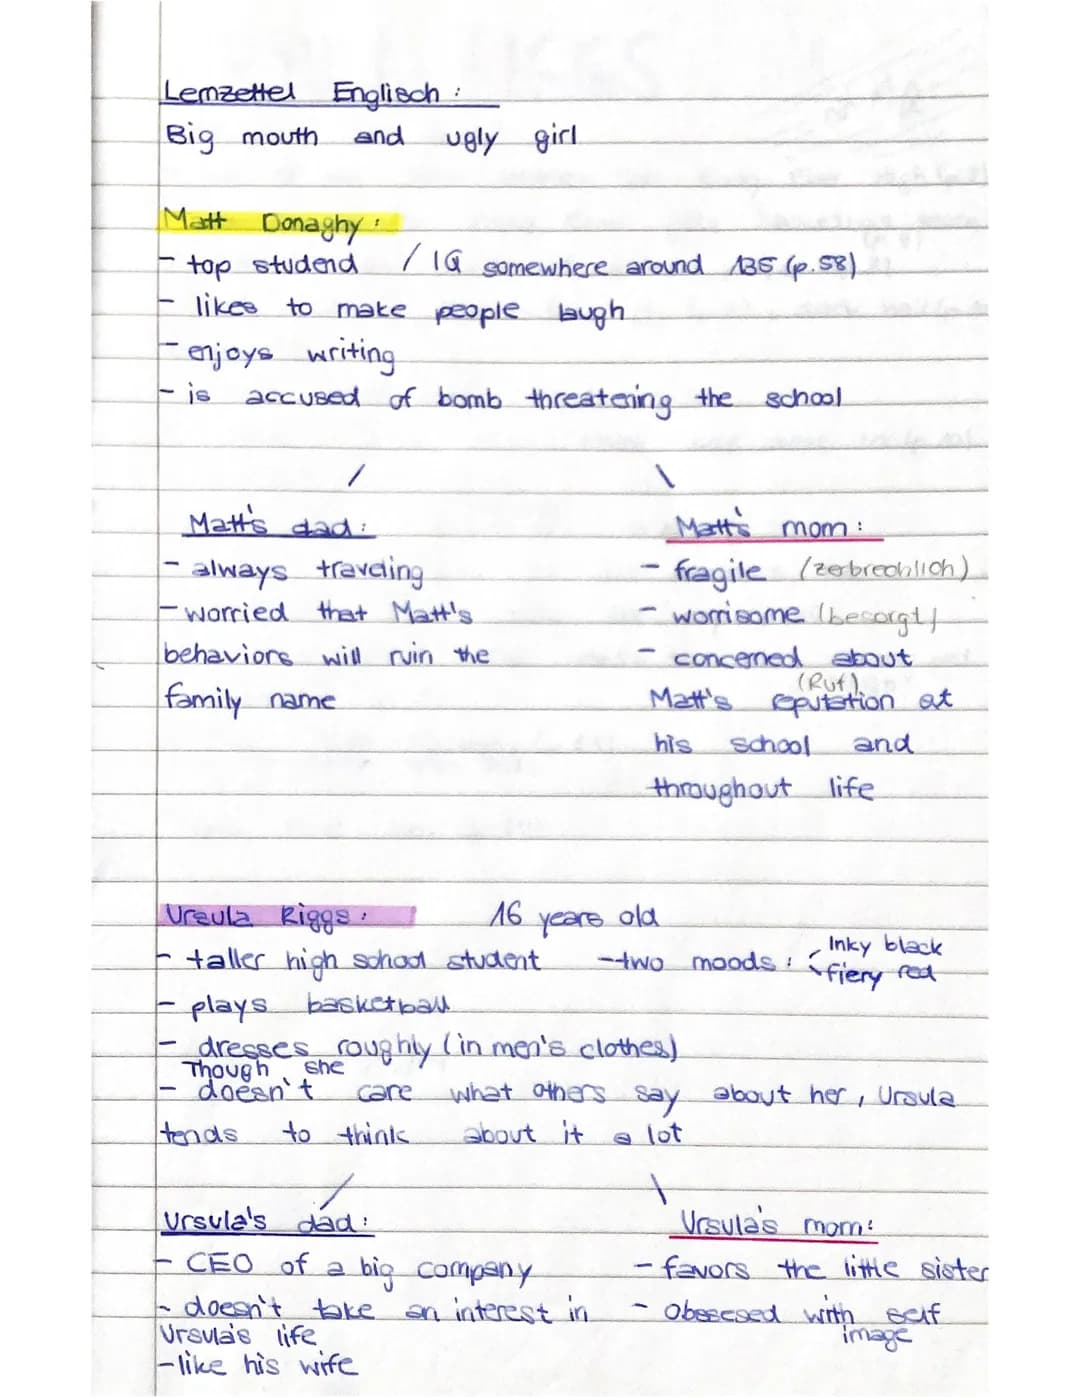 Lernzettel Englisch :
Big mouth and ugly girl
Matt Donaghy :
- top studend / IQ somewhere around 135 (p. 58)
- likes to make people laugh
- enjoys writing
- is accused of bomb threatening the school
Matt's dad :
- always traveling
- worried that Matt's
behaviors will ruin the
family name
Matt's mom :
- fragile (zerbrechlich)
- worrisome (besorgt)
- concerned about
(Ruf)
Matt's reputation at
his school and
throughout life
Ursula Riggs : 16 years old
- taller high school student
- two moods : Inky black
fiery red
- plays basketball
- dresses roughly (in men's clothes)
Though she
- doesn't care what others say about her, Ursula
tends to think about it a lot
Ursula's dad :
- CEO of a big company
- doesn't take an interest in
Ursula's life
- like his wife
Ursula's mom :
- favors the little sister
- Obsessed with self
image